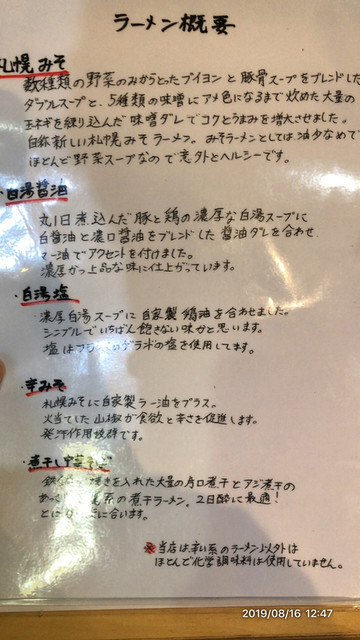 ラーメン概要
札幌みそ
数種類の野菜のみからとったブイヨンと豚骨スープをブレンドした
ダブルスープと、5種類の味噌にアメ色になるまで炒めた大量の
玉ネギを練り込んだ味噌ダレでコクとうまみを増大させました。
自称新しい札幌みそラーメン。みそラーメンとしては油少なめで
ほとんど野菜スープなので意外とヘルシーです。
・白湯醤油
丸1日煮込んだ豚と鶏の濃厚な白湯スープに
白醤油と濃口醤油をブレンドした醤油ダレを合わせ、
マー油でアクセントを付けました。
濃厚かつ上品な味に仕上がっています。
・白湯塩
濃厚白湯スープに自家製鶏油を合わせました。
シンプルでいちばん飽きない味かと思います。
塩はフラ のゲランドの塩を使用してます。
・辛みそ
札幌みそに自家製ラー油をプラス。
火当てした山椒が食欲と辛さを促進します。
発汗作用抜群です。
・煮干し中華そば
焼きを入れた大量の片口煮干とアジ煮干の
あっ 系の煮干ラーメン。2日酔に最適!
と に合います。
※当店は辛い系のラーメン以外は
ほとんど化学調味料は使用していません。
2019/08/16 12:47